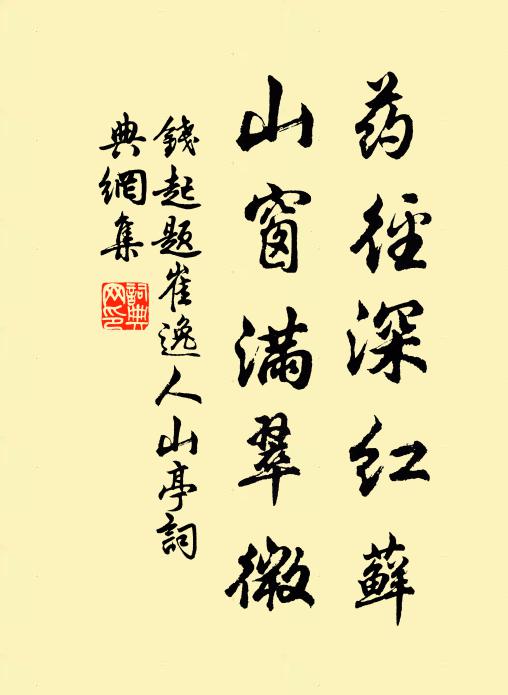 药径深红藓
山窗满翠微
錢起题崔逸人山亭詞
典網集
詞典网印